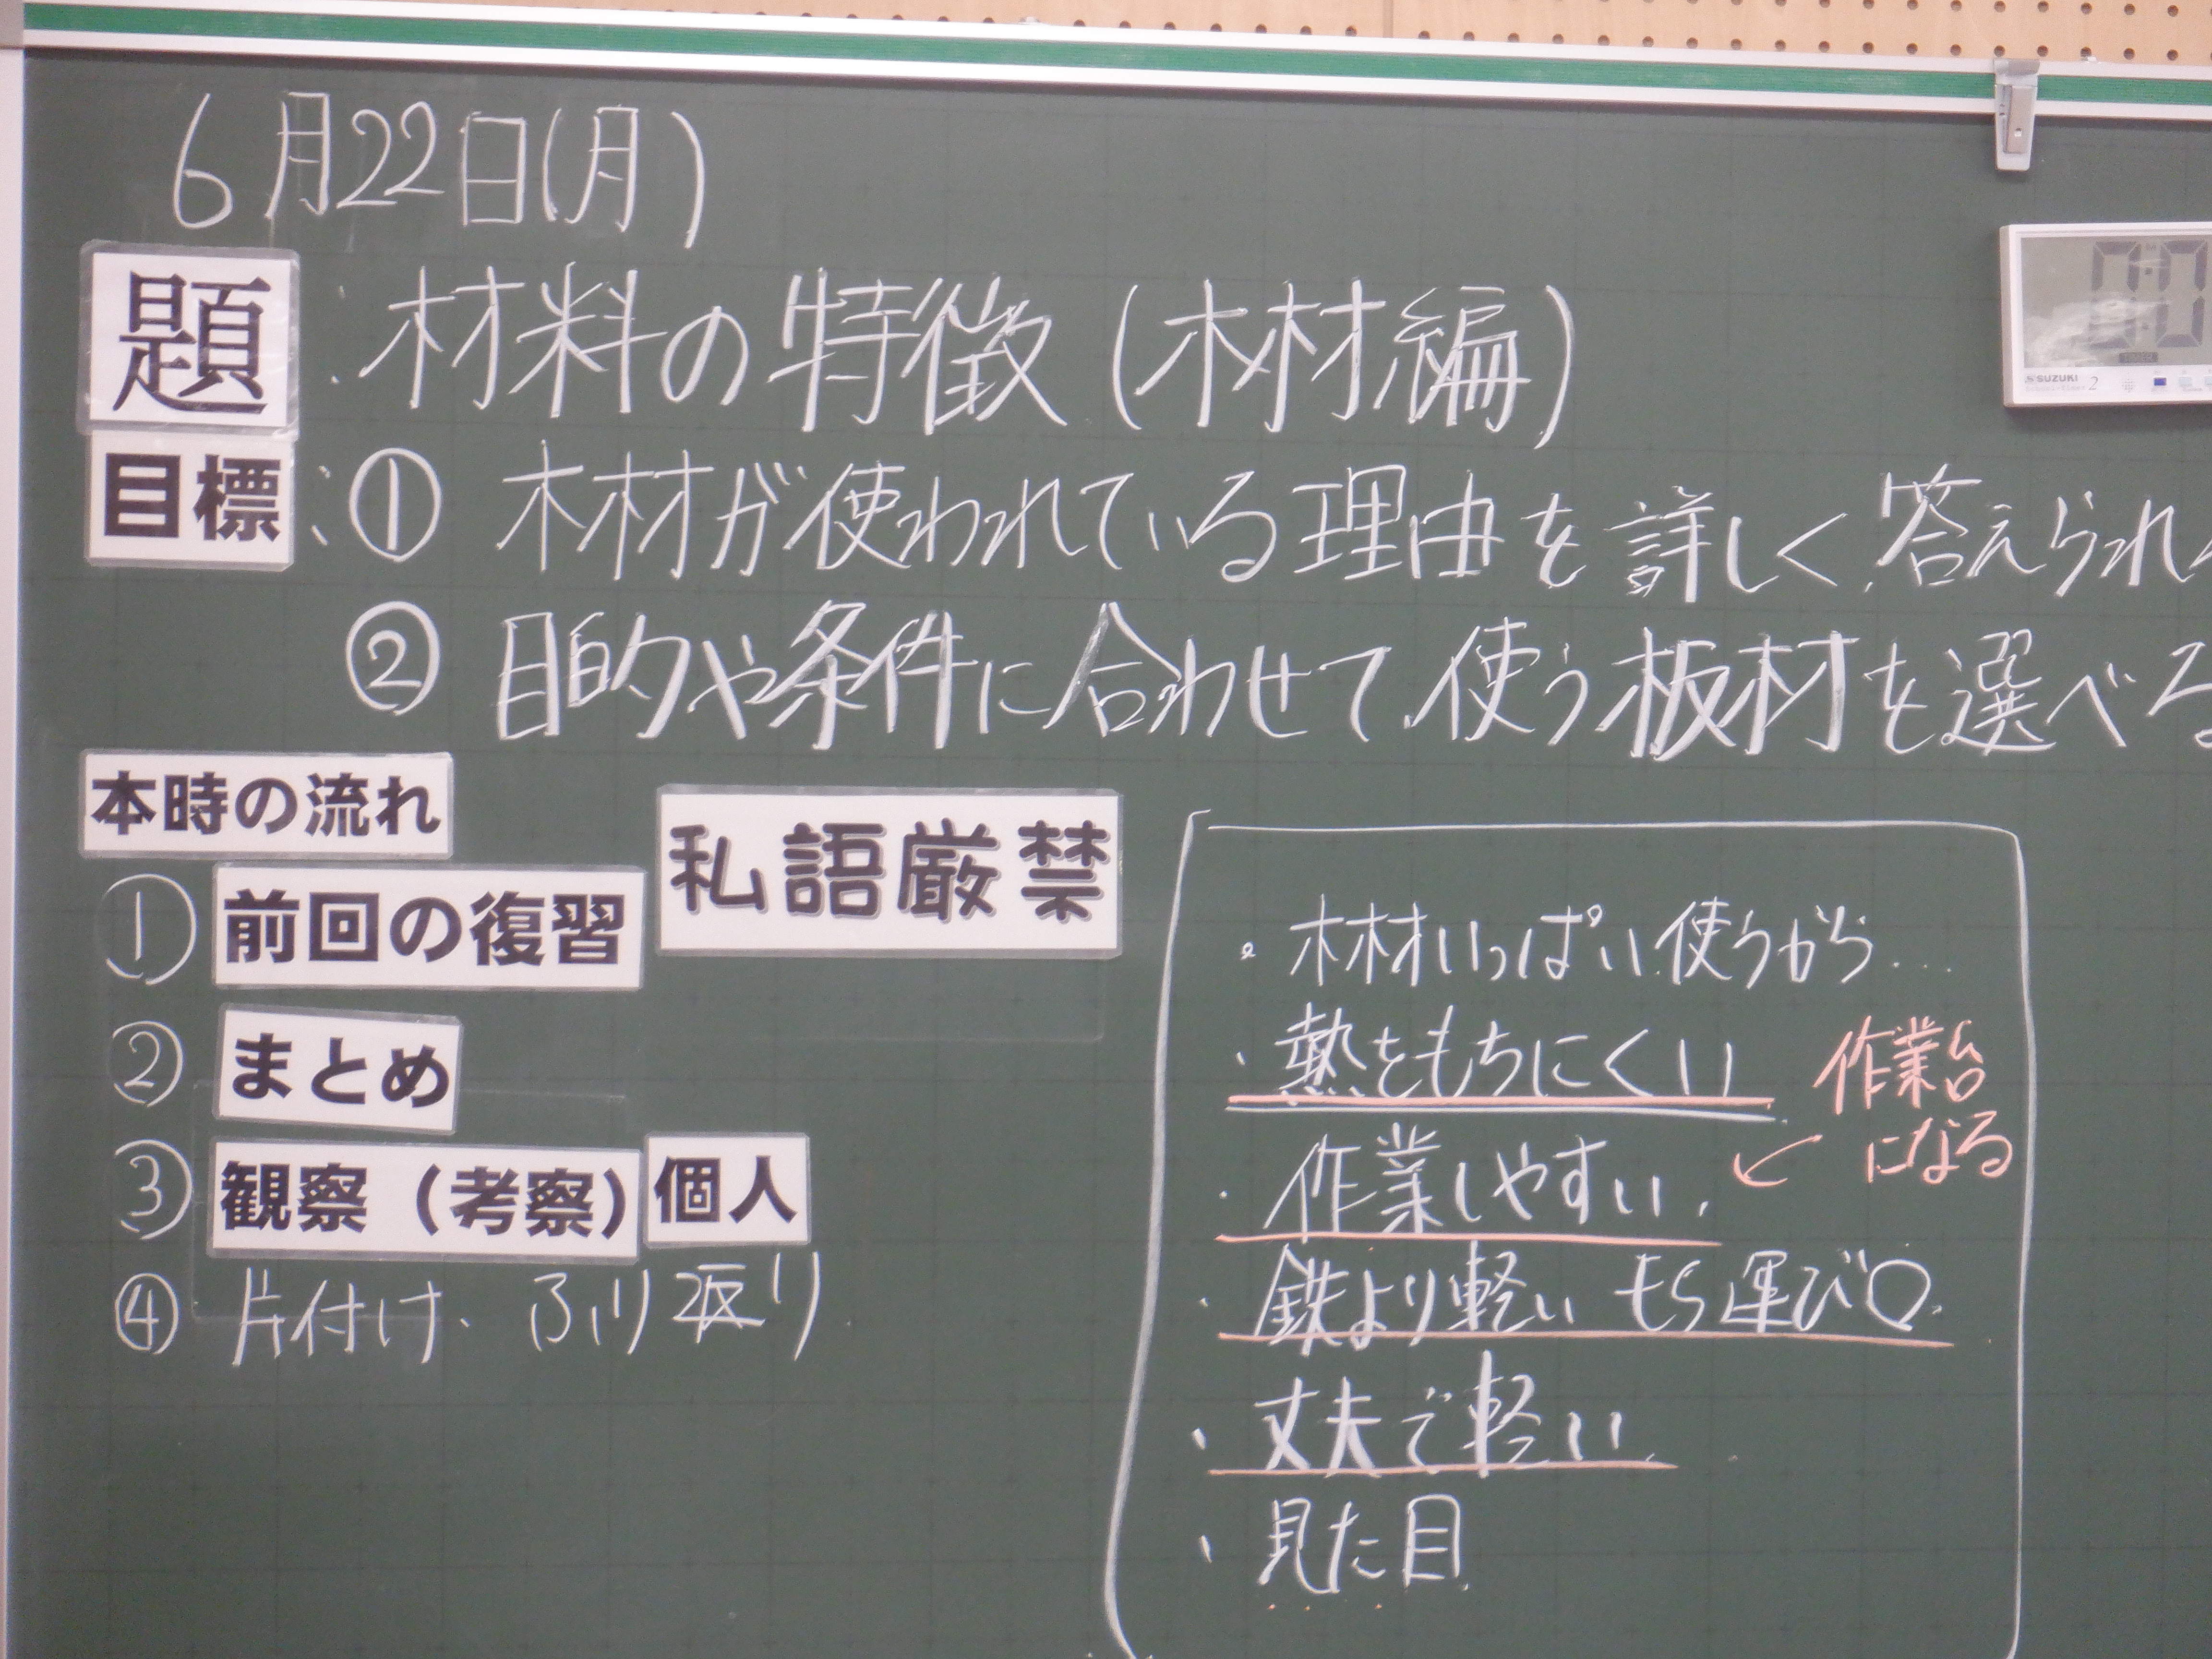 6月22日(月)
題:材料の特徴(木材編)
目標:①木材が使われている理由を詳しく答えられ
②目的や条件に合わせて、使う板材を選べる
本時の流れ
私語厳禁
①前回の復習
②まとめ
③観察（考察）個人
④片付け、ふり返り
・木材いっぱい使うから...
・熱をもちにくい
作業台
になる
・作業しやすい.
・鉄より軽い もち運び○.
・丈夫で軽い.
・見た目.
TIMER
SUZUKI
2